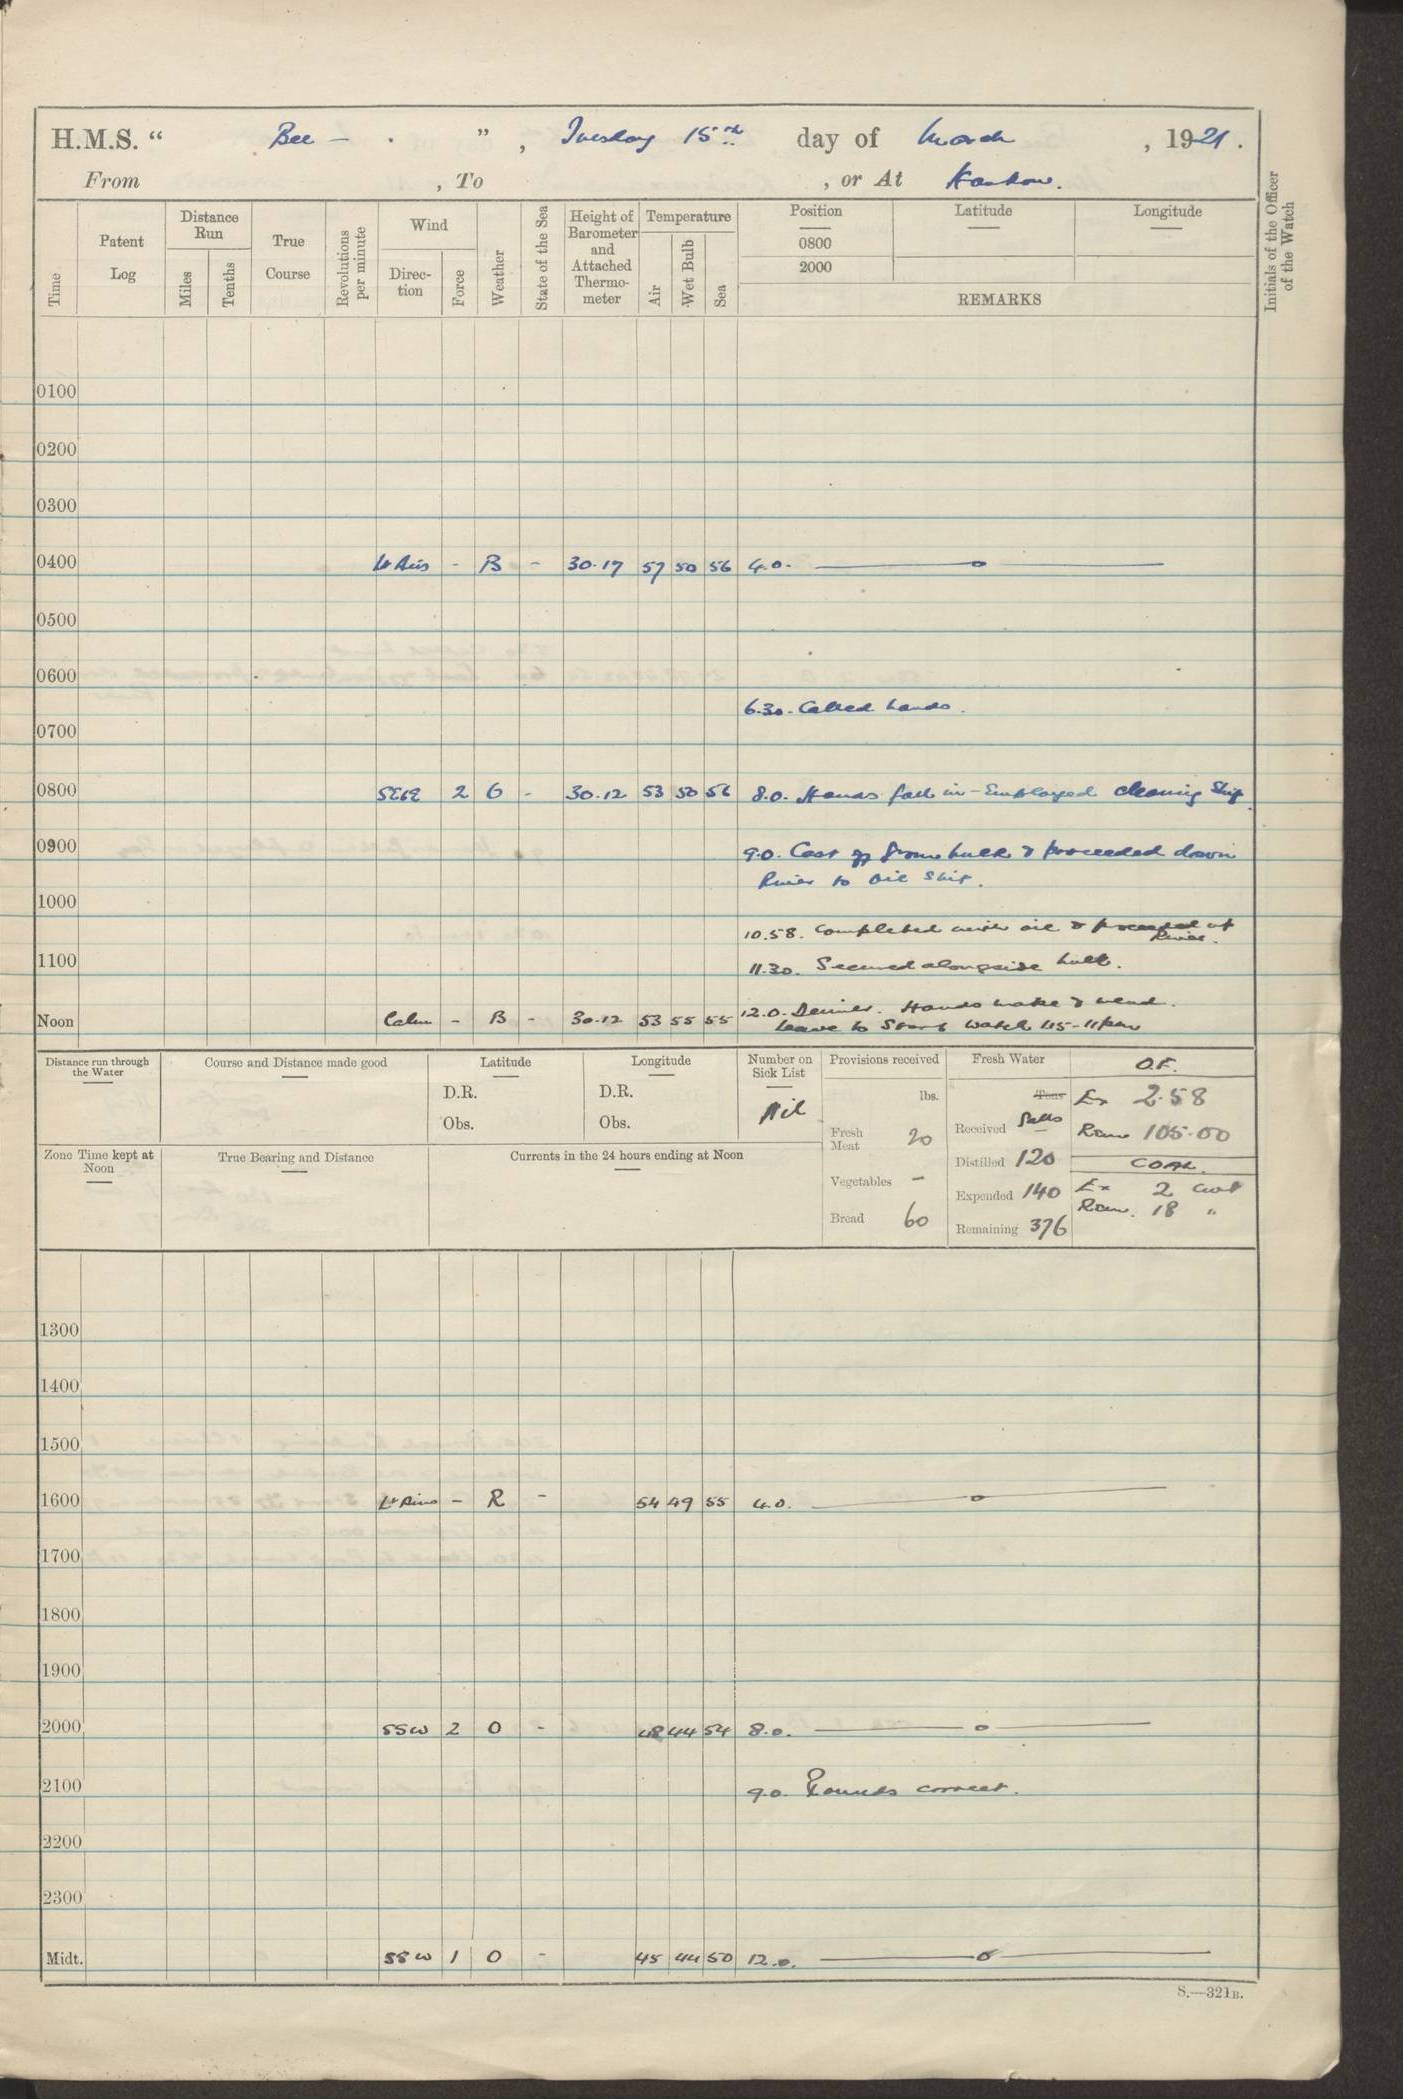 H.M.S. “ Bee - . ”, Tuesday 15th day of March, 1921.
From , To , or At Hankow.
Time
Patent Log
Distance Run
Miles
Tenths
True Course
Revolutions per minute
Wind
Direc-tion
Force
Weather
State of the Sea
Height of Barometer and Attached Thermo-meter
Temperature
Air
Wet Bulb
Sea
Position
0800
2000
Latitude
Longitude
REMARKS
Initials of the Officer of the Watch
0100
0200
0300
0400 Lt Airs - B - 30.17 57 50 56 4.0. —o—
0500
0600
6.30. Called hands.
0700
0800 2 - 30.12 53 50 56 8.0. Hands fall in - Employed cleaning Ship.
0900 9.0. Cast off from hulk & proceeded down
River to oil ship.
1000
10.58. Completed with oil & proceeded up
River.
1100 11.30. Secured alongside hulk.
Noon Calm - B - 30.12 53 55 55 12.0. Dinner. Hands make & mend.
Leave to Starb watch 1.15-11pm
Distance run through the Water
Course and Distance made good
Latitude
D.R.
Obs.
Longitude
D.R.
Obs.
Number on Sick List
Nil
Provisions received
lbs.
Fresh Meat 20
Vegetables -
Bread 60
Fresh Water
Tons
Received Galls
Distilled 120
Expended 140
Remaining 376
O.F.
Ex 2.58
Rem 105.00
COAL.
Ex 2 cwt
Rem. 18 "
Zone Time kept at Noon
True Bearing and Distance
Currents in the 24 hours ending at Noon
1300
1400
1500
1600 Lt Airs - R - 54 49 55 4.0. —o—
1700
1800
1900
2000 SSW 2 O - 48 44 54 8.0. —o—
2100 9.0. Rounds correct.
2200
2300
Midt. SSW 1 O - 45 44 50 12.0. —o—
S.—321B.